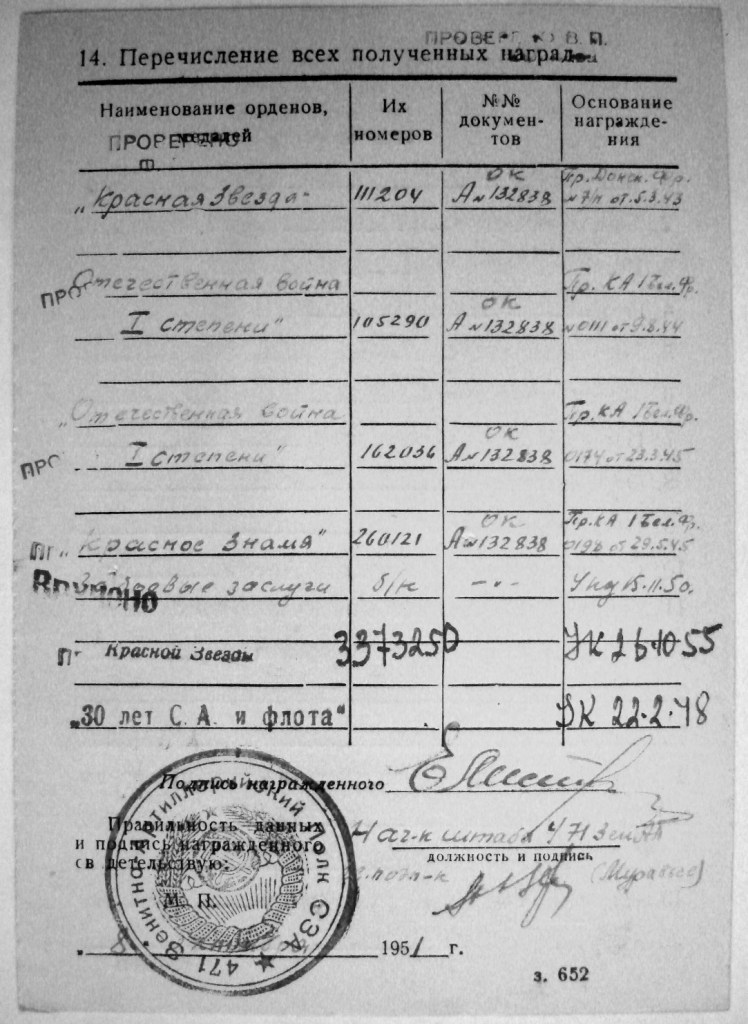 ПРОВЕРЕНО В. П.
14. Перечисление всех полученных наград
Наименование орденов, медалей
Их номеров
№№ документов
Основание награждения
ПРОВЕРЕНО
„Красная Звезда" 111204 ОК А № 132838 Пр. Донск. Фр. № 7/н от 5.3.43
„Отечественная война Пр. КА 1 Бел. Фр.
I степени" 105290 ОК А № 132838 № 0111 от 9.8.44
„Отечественная война Пр. КА 1 Бел. Фр.
I степени" 162036 ОК А № 132838 0174 от 23.3.45
„Красное Знамя" 260121 ОК А № 132838 Пр. КА 1 Бел. Фр. от 29.5.45
За боевые заслуги б/н -"- Указ 15.11.50.
Вручено
Красной Звезды 3373250 УК 26.10.55
„30 лет С. А. и флота" УК 22.2.48
Подпись награжденного
Правильность данных
и подпись награжденного
свидетельствую:
Нач-к штаба 471 ЗенАП
должность и подпись
п/полк-к (Муравьев)
М. П.
471 Зенитно Артиллерийский Полк СЗА
8 1951 г.
з. 652